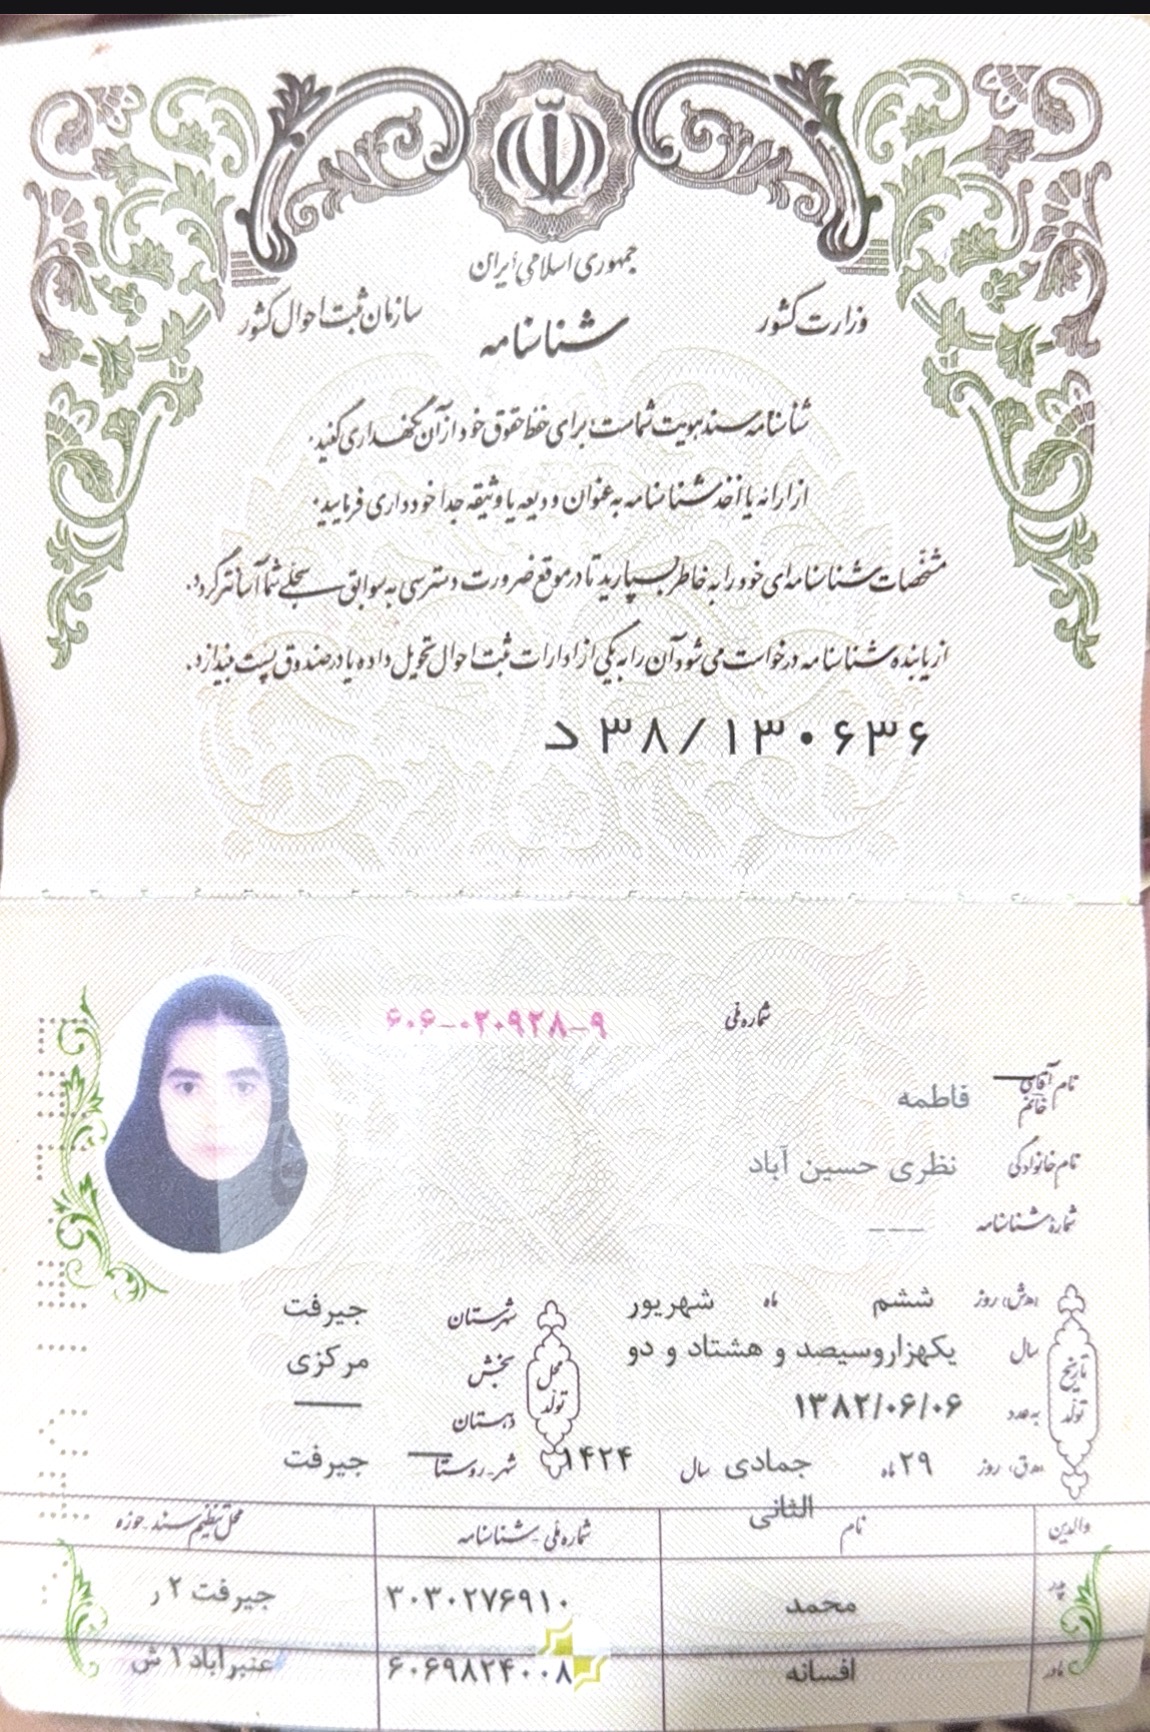 جمهوری اسلامی ایران
وزارت کشور
سازمان ثبت احوال کشور
شناسنامه
شناسنامه سند هویت شماست؛ برای حفظ حقوق خود از آن نگهداری کنید.
از ارائه یا اخذ شناسنامه به عنوان ودیعه یا وثیقه جداً خودداری فرمایید.
مشخصات شناسنامه‌ای خود را به خاطر بسپارید تا در موقع ضرورت دسترسی به سوابق سجلی شما آسانتر گردد.
از یابنده شناسنامه درخواست می‌شود آن را به یکی از ادارات ثبت احوال تحویل داده یا در صندوق پست بیندازد.
د ۳۸/۱۳۰۶۳۶
شماره ملی ۶۰۶-۰۲۰۹۲۸-۹
نام آقای خانم فاطمه
نام خانوادگی نظری حسین آباد
شماره شناسنامه ---
تاریخ تولد
(ه‍.ش) روز ششم ماه شهریور
سال یکهزاروسیصد و هشتاد و دو
به عدد ۱۳۸۲/۰۶/۰۶
(ه‍.ق) روز ۲۹ ماه جمادی الثانی سال ۱۴۲۴
محل تولد
شهرستان جیرفت
بخش مرکزی
دهستان
شهر-روستا جیرفت
والدین نام شماره ملی-شناسنامه محل تنظیم سند-حوزه
پدر محمد ۳۰۳۰۲۷۶۹۱۰ جیرفت ۲ ر
مادر افسانه ۶۰۶۹۸۲۴۰۰۸ عنبرآباد ۱ ش